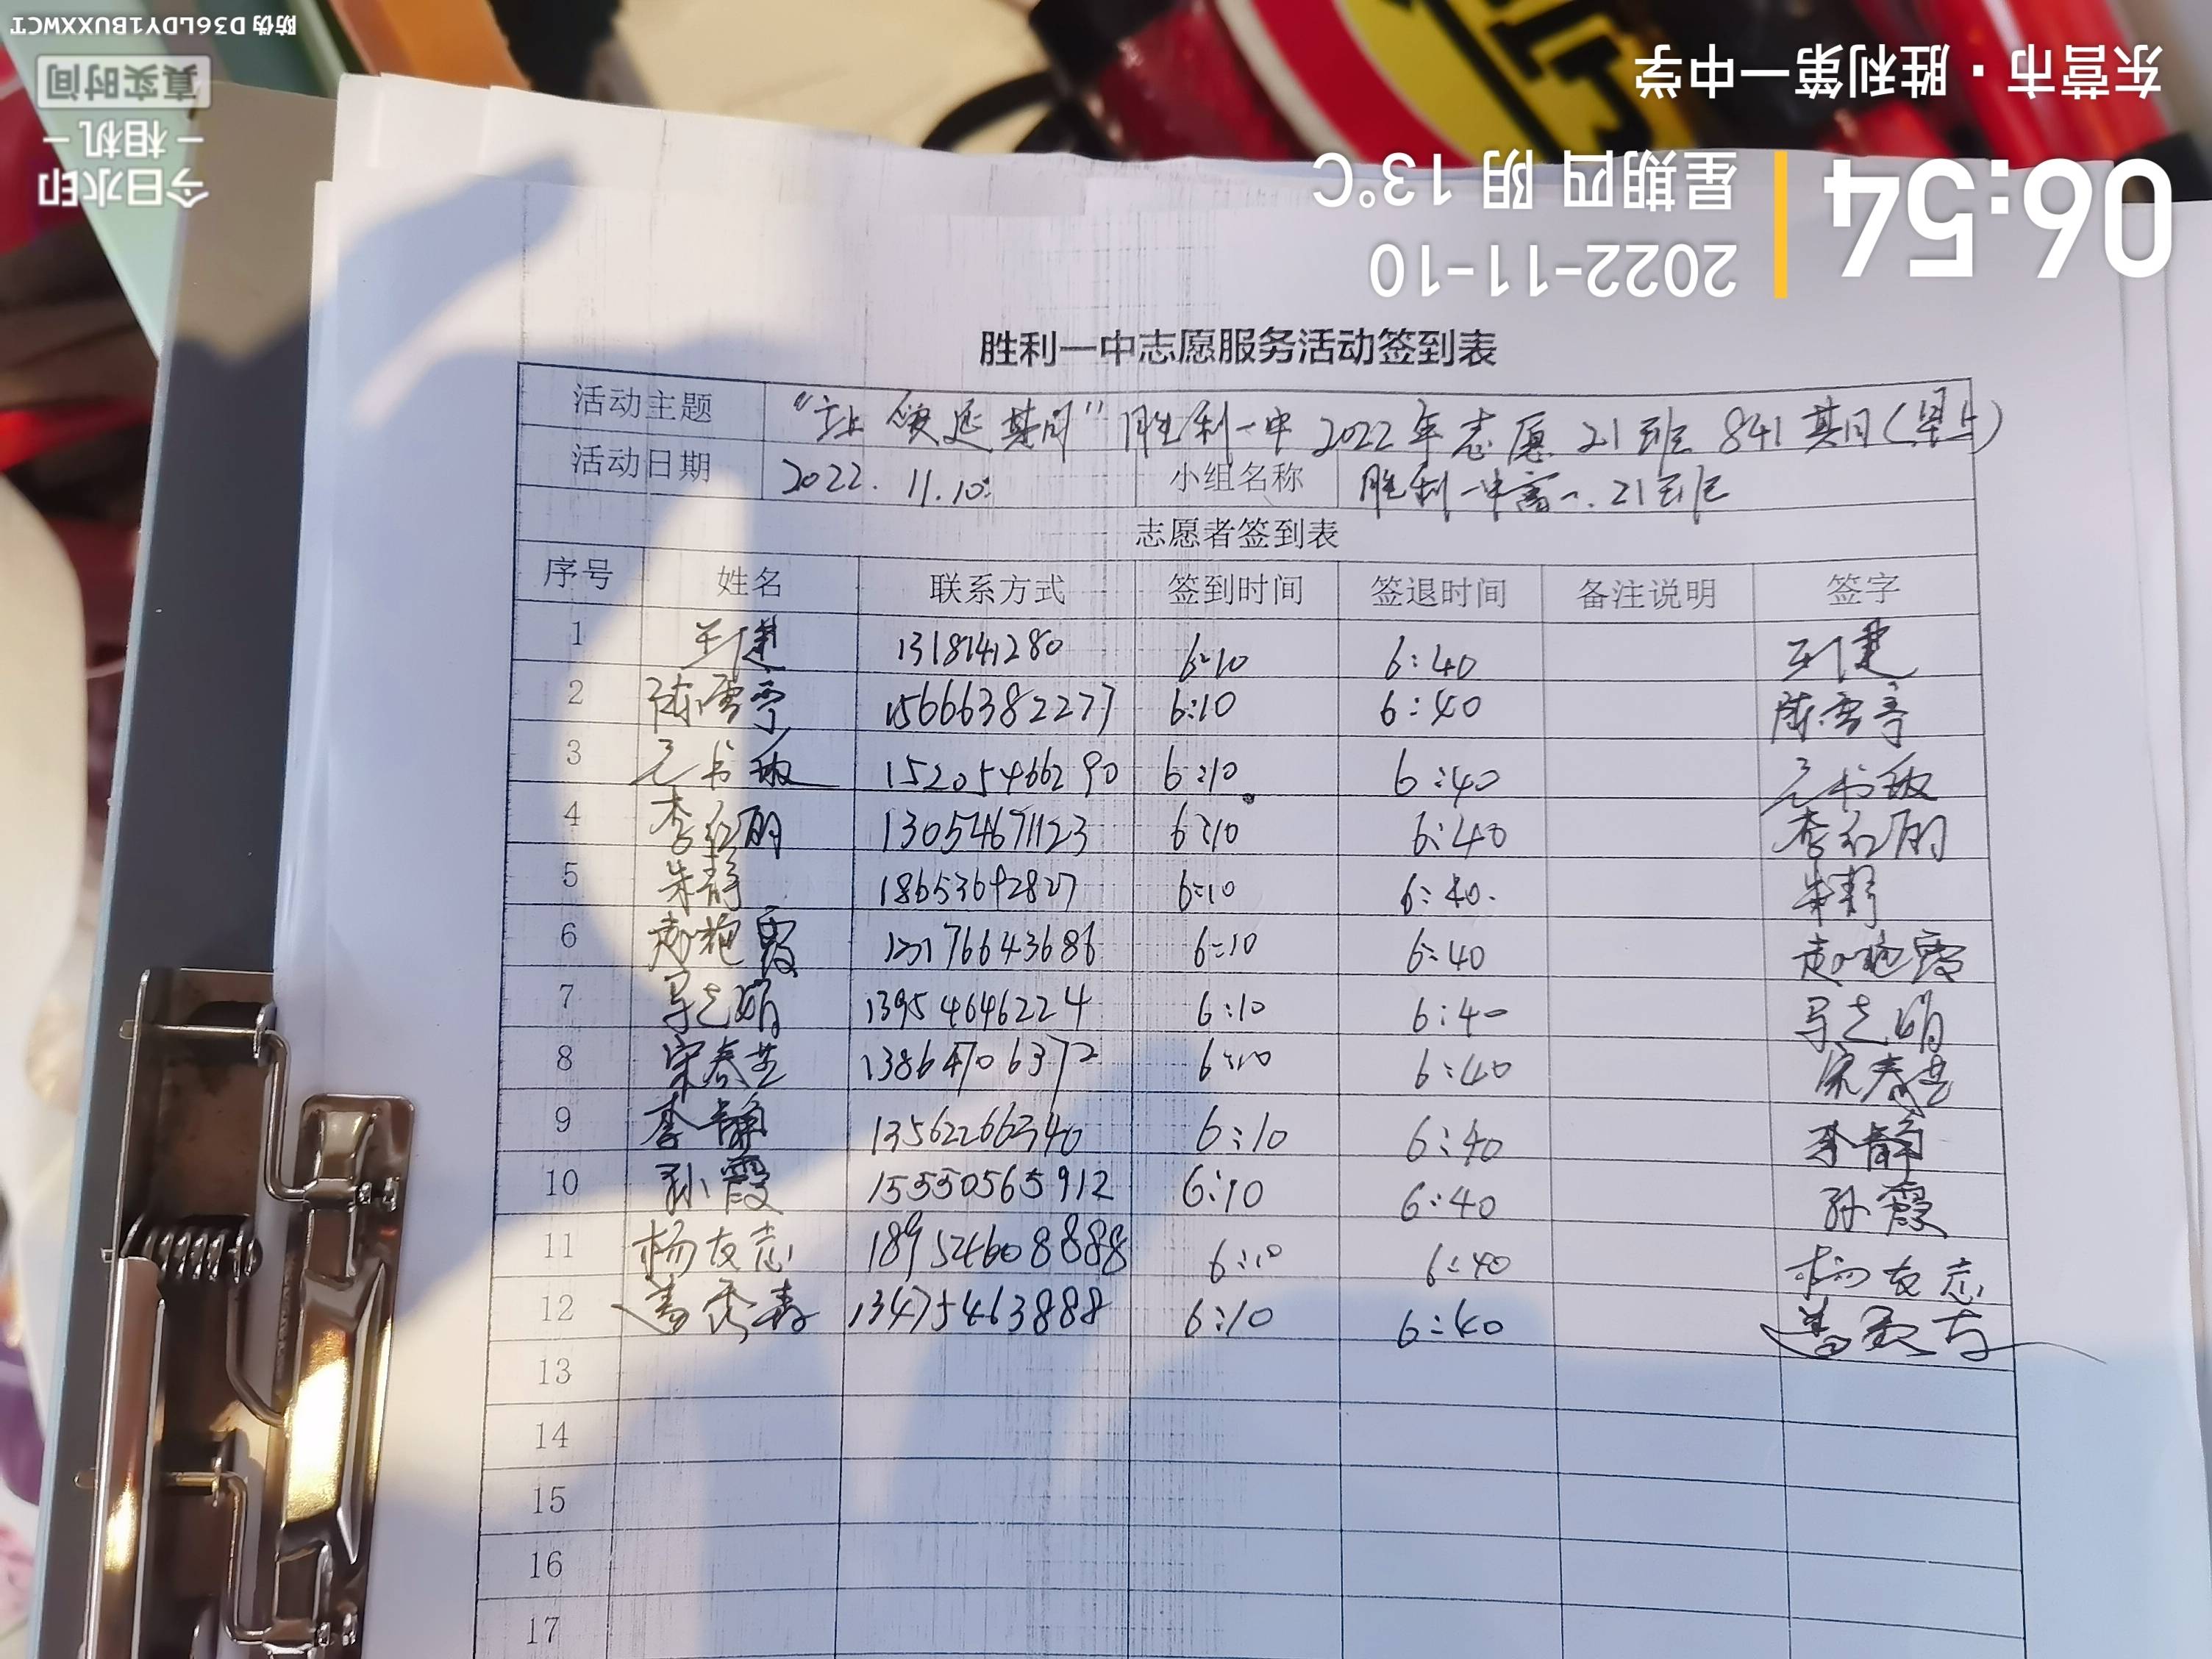 防伪 D36LDY1BUXXWCT
今日水印
－相机－
真实时间
东营市·胜利第一中学
06:54
2022-11-10
星期四 阴 13°C
胜利一中志愿服务活动签到表
活动主题 胜利一中2022年志愿21班841期(早上)
活动日期 2022.11.10. 小组名称 胜利一中高一.21班
志愿者签到表
序号 姓名 联系方式 签到时间 签退时间 备注说明 签字
1 王健 6:10 6:40 王健
2 陈雪亭 15666382277 6:10 6:40 陈雪亭
3 15205466290 6:10 6:40
4 李红丽 13054671123 6:10 6:40 李红丽
5 朱静 18653692827 6:10 6:40. 朱静
6 赵艳霞 6:10 6:40 赵艳霞
7 13954646224 6:10 6:40
8 宋春芝 13864706372 6:10 6:40 宋春芝
9 李静 13562266340 6:10 6:40 李静
10 孙霞 15550565912 6:10 6:40 孙霞
11 杨友志 18954608888 6:10 6:40 杨友志
12 13475463888 6:10 6:40
13
14
15
16
17